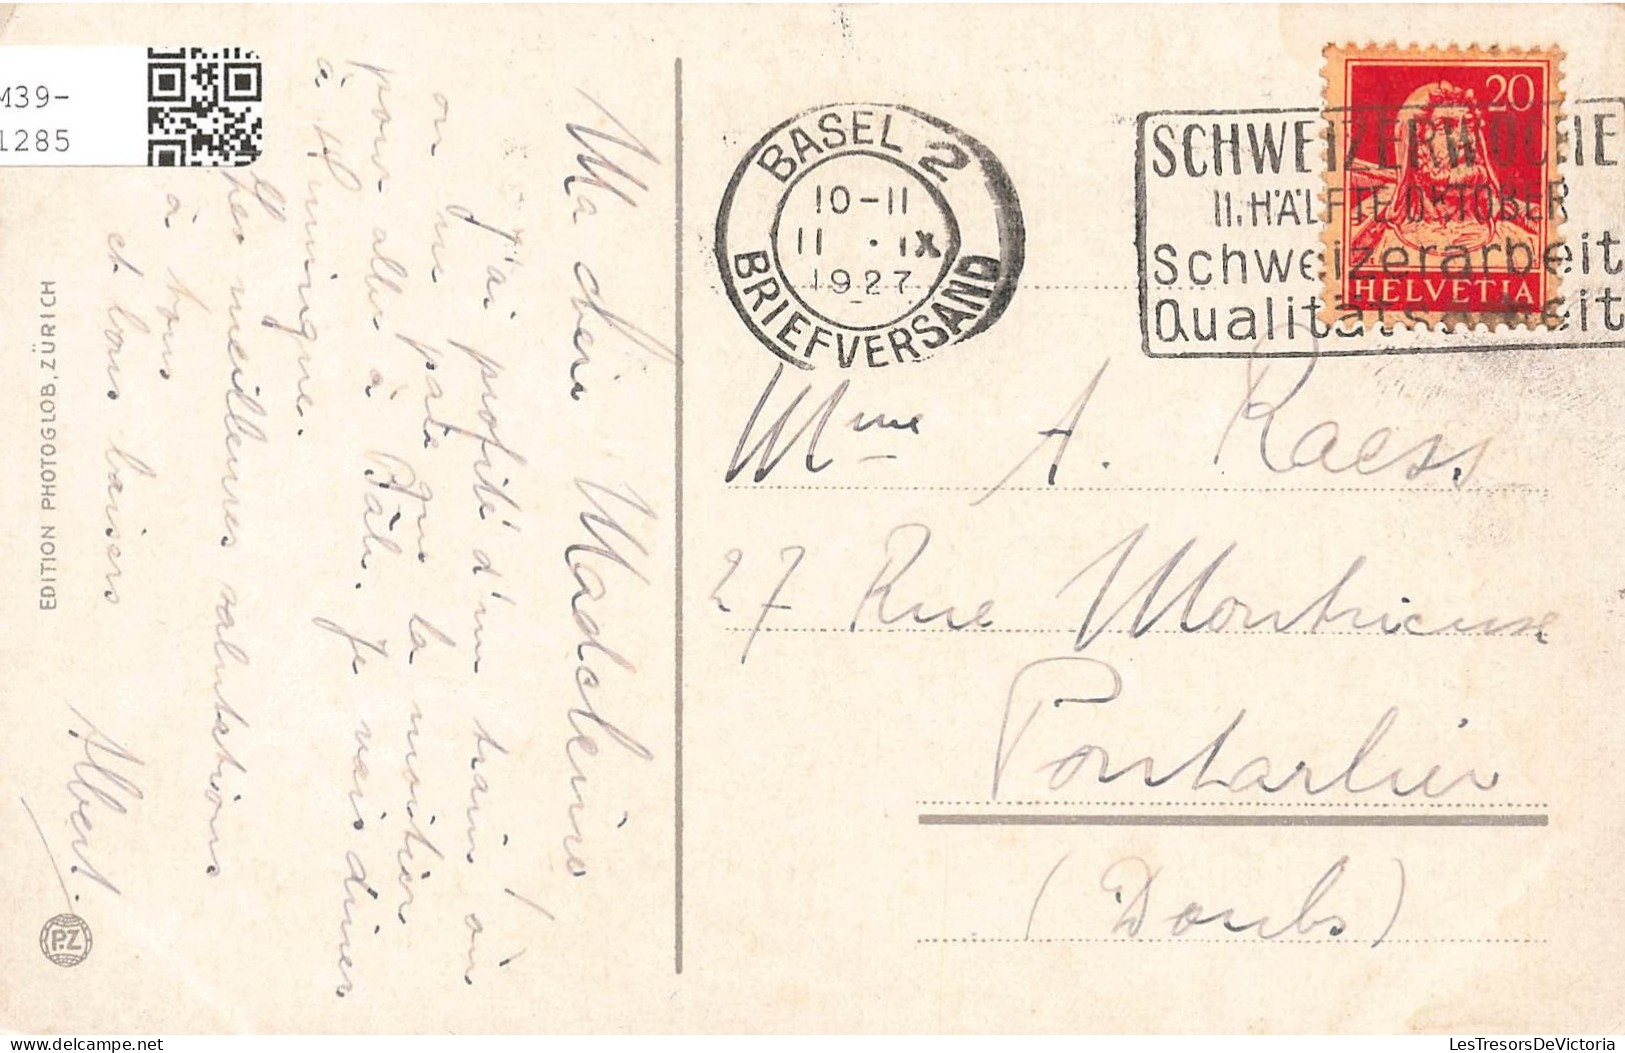 M39-
1285
EDITION PHOTOGLOB, ZÜRICH
P.Z
Ma chère Madeleine
J'ai profité d'un train où
on ne paie que la moitié
pour aller à Bâle. Je vais dîner
à Huningue.
Mes meilleures salutations
à tous
et bons baisers
Albert.
BASEL 2
10-11
11 . IX
1927
BRIEFVERSAND
SCHWEIZERWOCHE
II. HÄLFTE OKTOBER
Schweizerarbeit
Qualitätsarbeit
20
HELVETIA
Mme A. Raess
27 Rue Montrieuse
Pontarlier
(Doubs)
LesTresorsDeVictoria